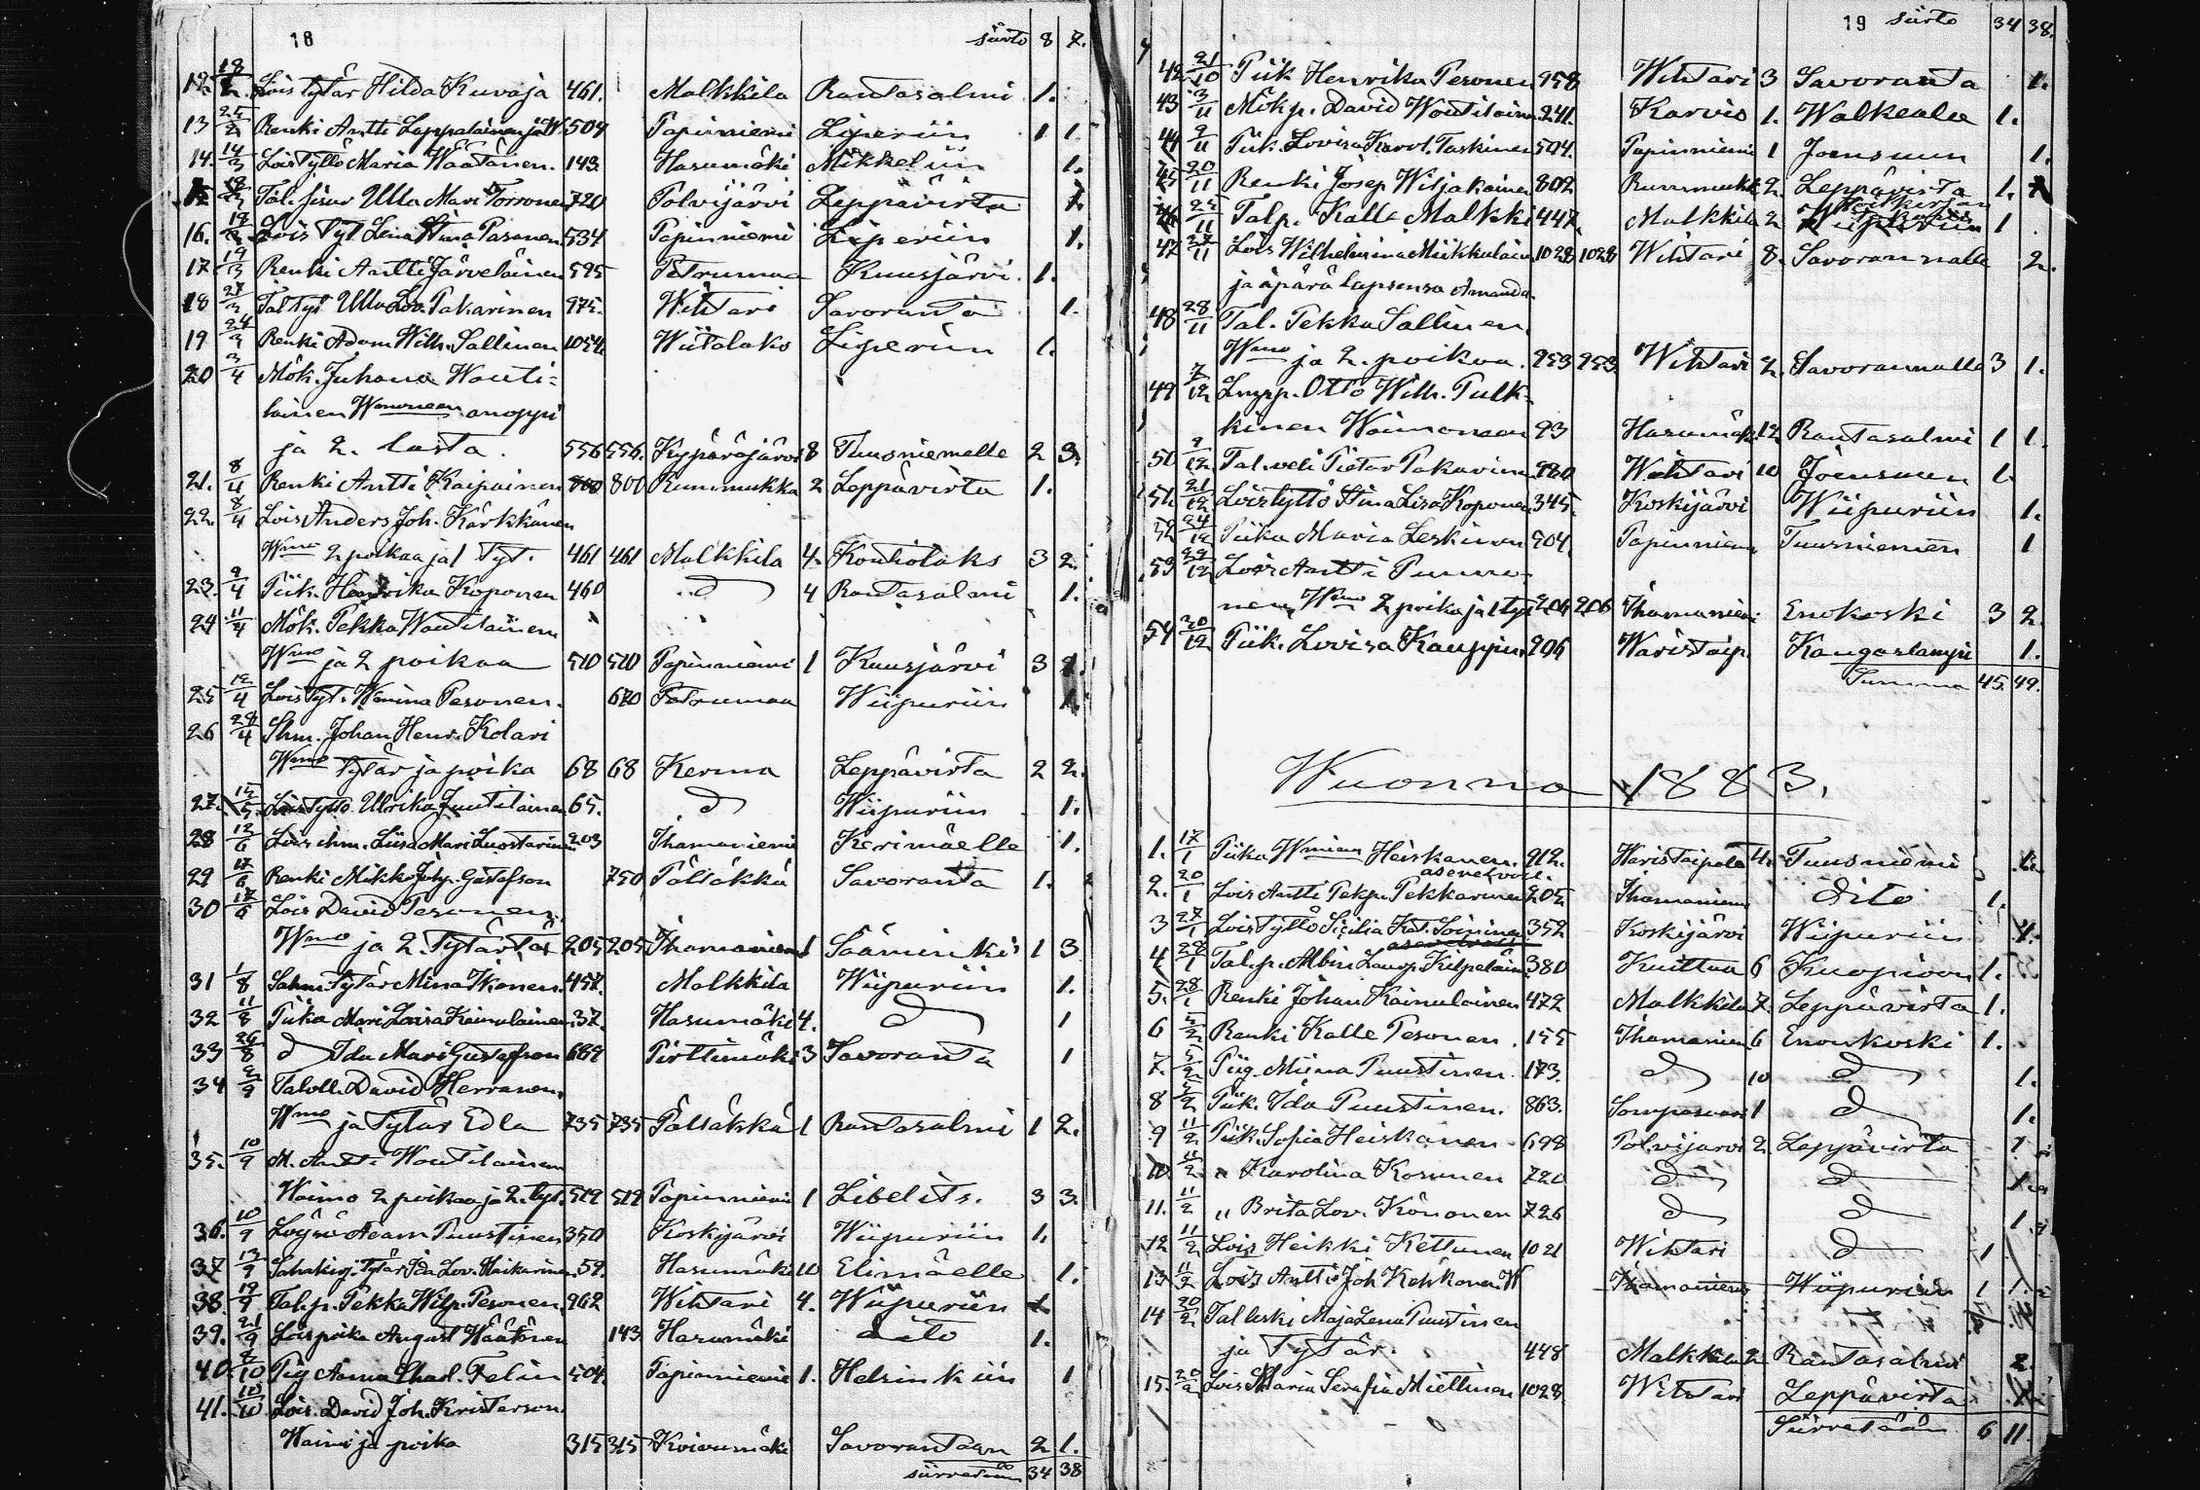 18 siirto 8 7.
12. 18/2 Lois tytär Hilda Kuvaja 461. Malkkila Rantasalmi 1.
13 25/2 Renki Antti Lappalainen ja W. 504 Papinniemi Liperiin 1 1.
14. 14/3 Lois Tyttö Maria Wäätänen. 143. Hasumäki Mikkeliin 1.
Tal. sisar Ulla Mari Torronen 720 Polvijärvi Leppävirta 1
16. Lois Tyt Lena Stina Pasanen 534 Papinniemi Liperiin 1.
17 19/3 Renki Antti Järveläinen 595 Petrumaa Kuusjärvi 1.
18 27/3 Tal tyt Ulla Lov. Pakarinen 975. Wihtari Savoranta 1.
19 Renki Adam Wilh. Sallinen 1054. Wiitalaks Liperiin 1.
20 3/4 Mök. Juhana Wouti-
lainen Wmoneen anoppi
ja 2. lasta. 556 556. Kypäräjärvi 8 Tuusniemelle 2 3.
21. 8/4 Renki Antti Kaipainen 800 800 Rummukka 2 Leppävirta 1.
22. 8/4 Lois Anders Joh. Kärkkänen
Wmo 2 poikaa ja 1 Tyt. 461 461 Malkkila 4. Kontiolaks 3 2.
23. 9/4 Piik. Hendrika Koponen 460 d 4 Rantasalmi 1.
24 11/4 Mök. Pekka Woutilainen
Wmo ja 2 poikaa 510 510 Papinniemi 1 Kuusjärvi 3 1.
25 12/4 Lois Tyt. Wamina Pesonen. 670 Petrumaa Wiipuriin 1.
26 28/4 Ihm. Johan Henr. Kolari
Wmo Tytär ja poika 68 68 Kerma Leppävirta 2 2.
27. 12/5 Lois Tyttö. Ulrika Juutilainen 65. d Wiipuriin 1.
28 12/6 Lois ihm. Liisa Mari Luostarinen 203 Ihamaniemi Kerimäelle 1.
29 17/6 Renki Mikko Jehp. Gustafson 750 Pölläkkä Savoranta 1.
30 17/6 Lois David Pesonen.
Wmo ja 2. Tytärtä 205 205 Ihamaniemi 1 Sääminki 1 3
31 1/8 Sahm. Tytär Mina Ikonen. 457. Malkkila Wiipuriin 1.
32 11/8 Piika Mari Lovisa Kainulainen 37. Hasumäki 4. d 1
33 26/8 d Ida Mari Gustafson 689 Pirttimäki 3 Savoranta 1
34 2/9 Taloll. David Herranen.
Wmo ja Tytär Edla 735 735 Pölläkkä 1 Rantasalmi 1 2.
35. 10/9 M. Antti Woutilainen
Waimo 2 poikaa ja 2. tyt. 512 512 Papinniemi 1 Libelits. 3 3.
36. 10/9 Adam Puustinen 350 Koskijärvi Wiipuriin 1.
37 13/9 Tytär Ida Lov. Haikarinen 59. Hasumäki 10 Elimäelle 1.
38. 19/9 Tal.p. Pekka Wilp. Pesonen 962 Wihtari 4. Wiipuriin 1
39. 21/9 Lois poika August Wäätänen 143 Hasumäki dito 1.
40. 2/10 Piig Anna Charl. Felin 504. Papinniemi 1. Helsinkiin 1
41. 10/10 Lois. David Joh. Kristerson
Waimo ja poika 315 315 Koivumäki Savorantaan 2 1.
siirretään 34 38
19 siirto 34 38.
42 21/10 Piik Henrika Pesonen 958 Wihtari 3 Savoranta 1.
43 3/11 Mökp. David Woutilainen 241. Karvio 1. Walkeala 1.
44 9/11 Piik. Lovisa Karol. Taskinen 504. Papinniemi 1 Joensuun 1.
45 20/11 Renki Josep Wiljakainen 802 Rummukk 2. Leppävirta 1.
46 Talp. Kalle Malkki 447. Malkkila 2 Wiipuriin 1
47 27/11 Lois Wilhelmina Miikkulainen 1028 1028 Wihtari 8. Savorannalle 2.
ja äpärä lapsensa Amanda.
48 28/11 Tal. Pekka Sallinen
Wmo ja 2. poikaa. 953 953 Wihtari 2. Savorannalle 3 1.
49 7/12 Otto Wilh. Pulk-
kinen Waimoneen 93 Hasumäk 12 Rantasalmi 1 1.
50 9/12 Tal. veli Pietar Pakarinen 980 Wihtari 10 Joensuun 1.
51. 21/12 Lois tyttö Stina Lisa Koponen 345. Koskijärvi Wiipuriin 1.
52 24/12 Piika Maria Leskinen 504. Papinniemi Tuusniemen 1
53 29/12 Lois Antti Punno-
nen, Wmo 2 poika ja 1 tyt 206 206 Ihamaniemi Enokoski 3 2.
54 30/12 Piik. Lovisa Kauppin 906 Waristaip. Kangaslampi 1.
Summa 45. 49.
Wuonna 1883.
1. 17/1 Piika Wmiina Heiskanen. 912. Waristaipale 4. Tuusniemi
2. 20/1 Lois Antti Pekp. Pekkarinen 205 Ihamaniemi dito 1.
3 27/1 Lois Tyttö Sicilia Kat. Soininen 352 Koskijärvi Wiipuriin 1.
4 28/1 Tal.p. Albin Laup. Kilpeläin 380 Kuittua 6 Kuopioon 1.
5. 28/1 Renki Johan Kainulainen 472 Malkkila 7. Leppävirta 1.
6 5/2 Renki Kalle Pesonen. 155 Ihamaniem 6 Enonkoski 1.
7. 5/2 Piig. Miina Puustinen. 173. d 10 d 1.
8 5/2 Piik. Ida Puustinen. 863. Sompasaari 1 d 1.
9 11/2 Piik. Sofia Heiskanen 698 Polvijärvi 2. Leppävirta 1
10. 11/2 " Karolina Kosunen 720 d d 1
11. 11/2 " Brita Lov. Könönen 726 d d 1.
12 11/2 Lois Heikki Kettunen 1021 Wihtari d 1
13 11/2 Lois Antti Joh Kehkonen W Ihamaniemi Wiipuriin 1 1.
14 20/2 Tal leski Maja Lena Puustinen
ja Tytär. 448 Malkkila 2 Rantasalmi 2.
15. 20/2 Lois Maria Serafia Miettinen 1028 Wihtari Leppävirta 1
Siirretään 6 11.